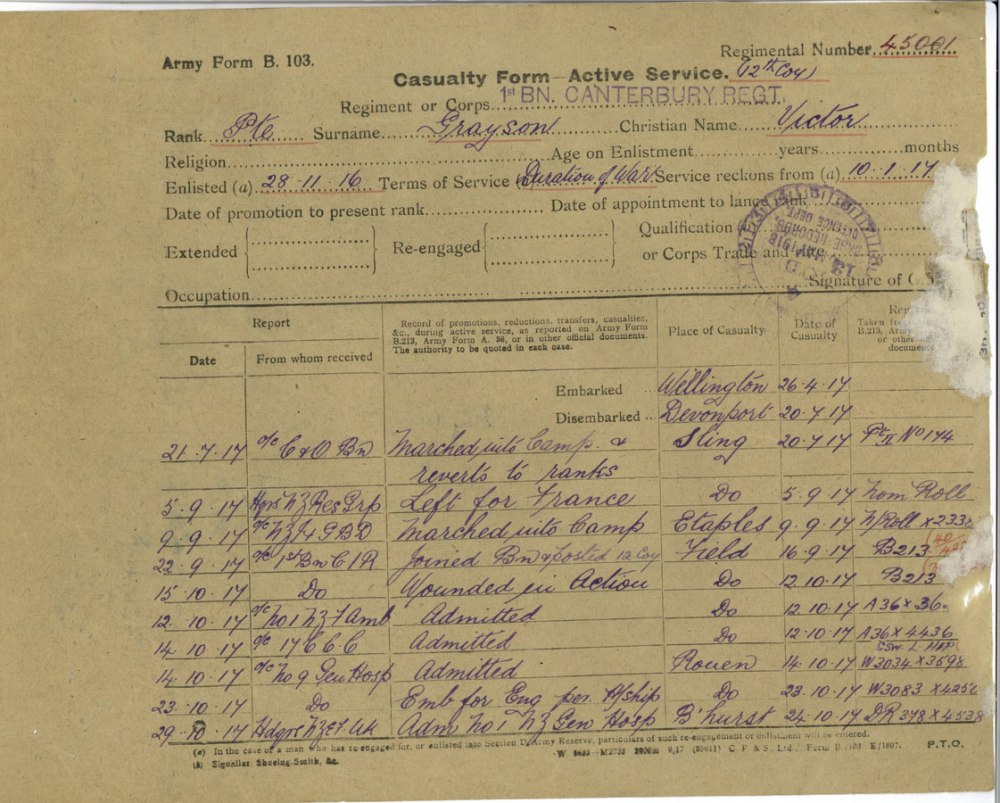 Army Form B. 103.
Regimental Number 45001
Casualty Form—Active Service. (12th Coy)
Regiment or Corps 1st BN. CANTERBURY REGT.
Rank Pte Surname Grayson Christian Name Victor
Religion Age on Enlistment years months
Enlisted (a) 28·11·16 Terms of Service Duration of War Service reckons from (a) 10·1·17
Date of promotion to present rank Date of appointment to lance rank
Extended Re-engaged Qualification
or Corps Trade and
Occupation Signature of
Report
Date From whom received
Record of promotions, reductions, transfers, casualties,
&c., during active service, as reported on Army Form
B.213, Army Form A. 36, or in other official documents.
The authority to be quoted in each case.
Place of Casualty
Date of
Casualty
Taken
B.213,
or other
Embarked Wellington 26·4·17
Disembarked Devonport 20·7·17
21·7·17 o/c C & O Bn Marched into Camp & Sling 20·7·17 No 174
reverts to ranks
5·9·17 Hqrs NZ Res Grp Left for France Do 5·9·17 Nom Roll
9·9·17 Marched into Camp Etaples 9·9·17 N/Roll
22·9·17 o/c 1st Bn C I R Joined Bn & posted 12 Coy Field 16·9·17 B213
15·10·17 Do Wounded in Action Do 12·10·17 B213
12·10·17 o/c No 1 NZ F Amb Admitted Do 12·10·17 A36
14·10·17 o/c 17 CCC Admitted Do 12·10·17 A36 X 4436
14·10·17 o/c No 9 Gen Hosp Admitted Rouen 14·10·17 W3034 X 3598
23·10·17 Do Emb for Eng per H/ship Do 23·10·17 W3083
29·10·17 Hdqrs NZEF UK Adm No 1 NZ Gen Hosp B'hurst 24·10·17 DR 378
(a) In the case of a man who has re-engaged for, or enlisted into Section D, Army Reserve, particulars of such re-engagement or enlistment will be entered.
(b) Signaller, Shoeing-Smith, &c.
P.T.O.